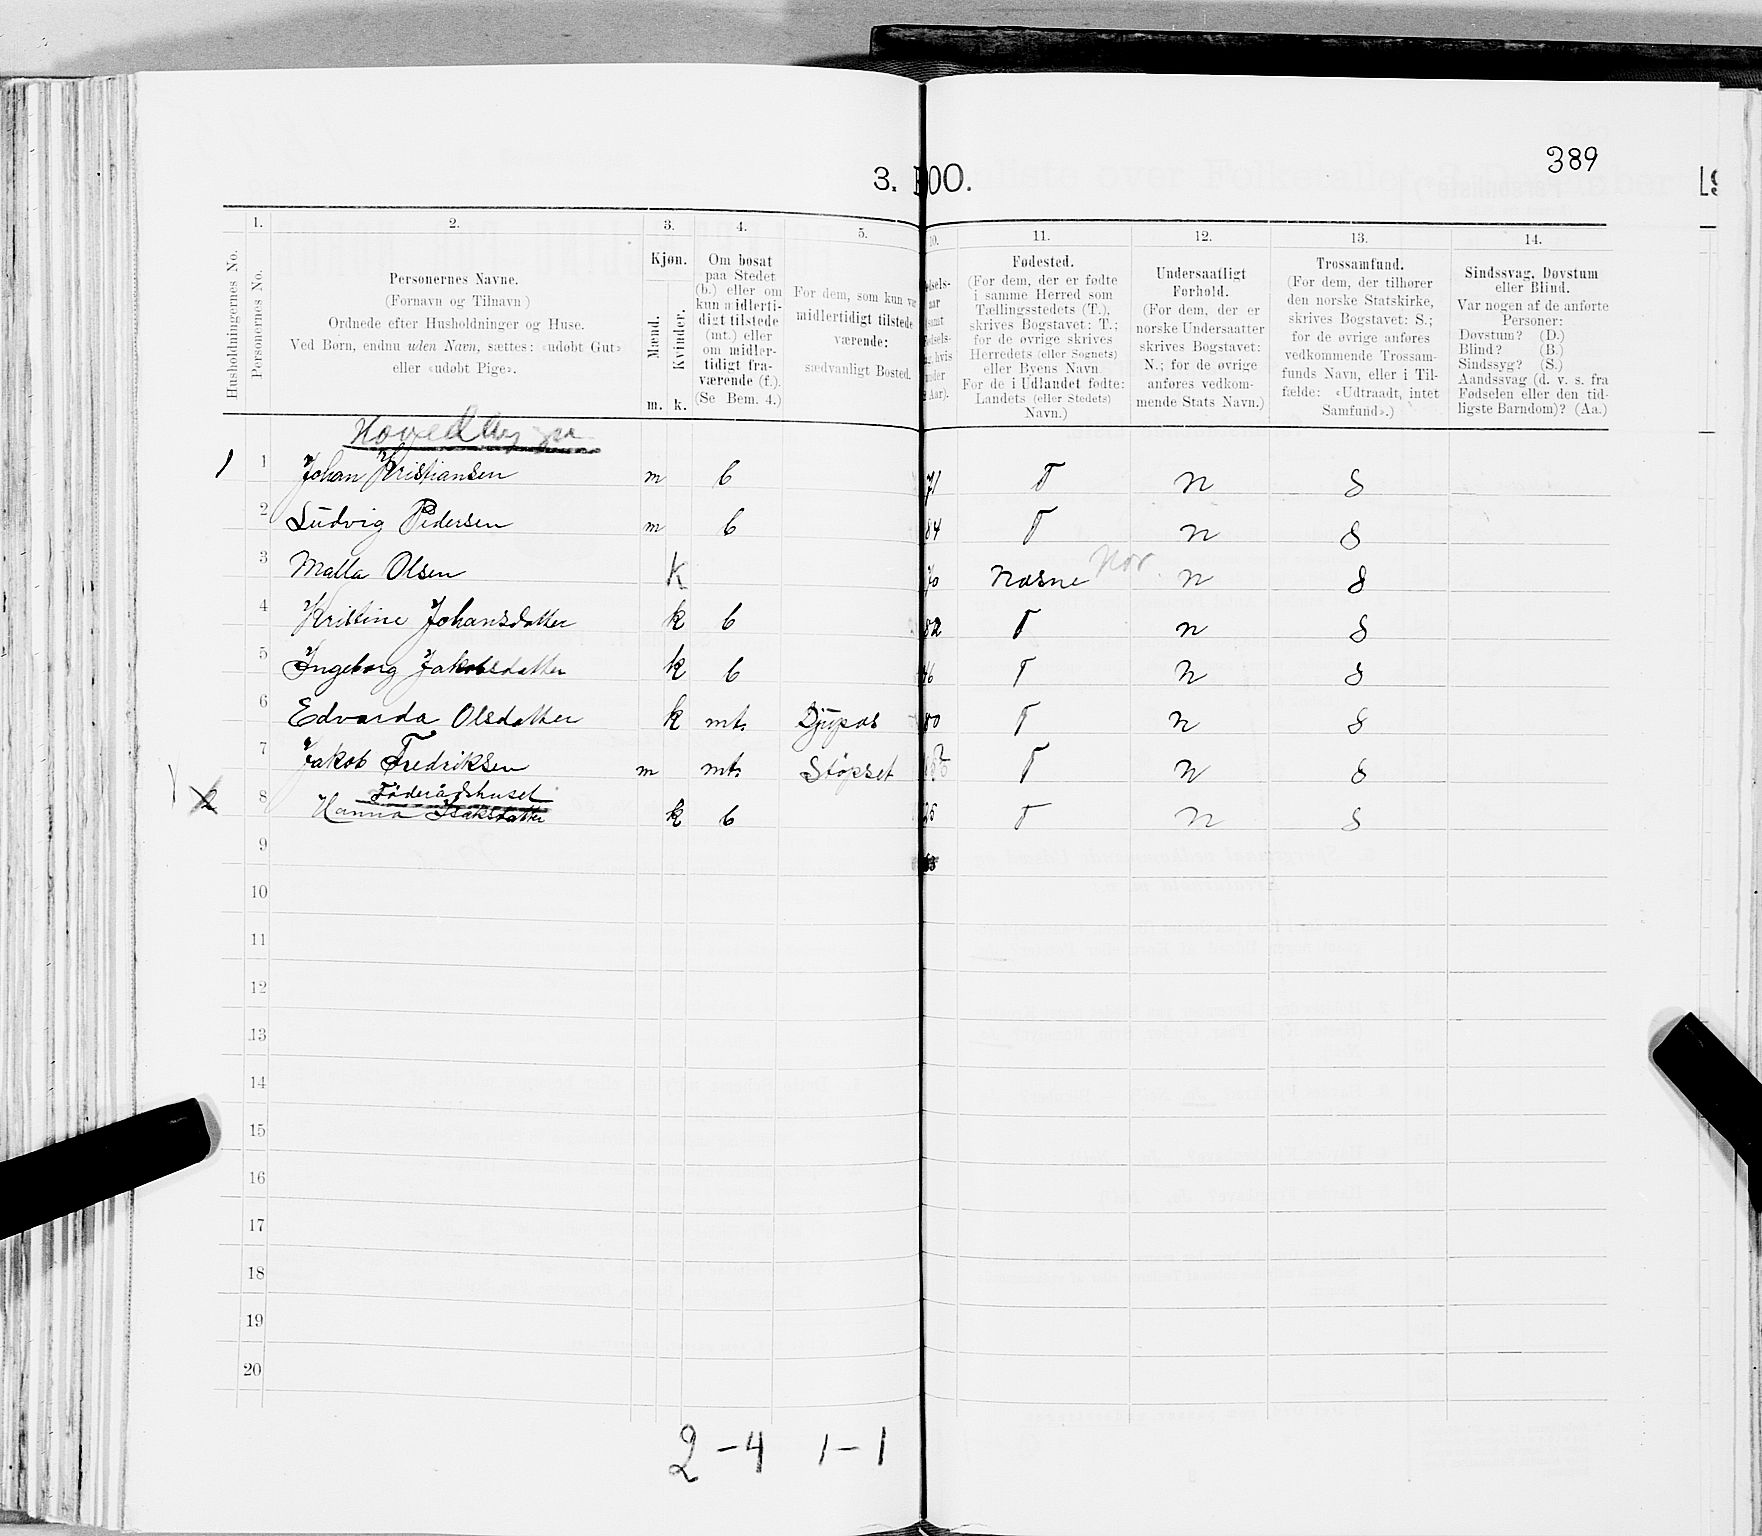 389
3.
00.
1.
2.
3.
4.
5.
10.
11.
12.
13.
14.
Husholdningernes No.
Personernes No.
Personernes Navne.
(Fornavn og Tilnavn)
Ordnede efter Husholdninger og Huse.
Ved Børn, endnu uden Navn, sættes: «udøbt Gut»
eller «udøbt Pige».
Kjøn.
Mænd.
Kvinder.
m. k.
Om bosat
paa Stedet
(b.) eller om
kun midlerti-
digt tilstede
(mt.) eller
om midler-
tidigt fra-
værende (f.).
(Se Bem. 4.)
For dem, som kun
midlertidigt tilstede
værende:
sædvanligt Bosted.
Fødested.
(For dem, der er fødte
i samme Herred som
Tællingsstedets (T.),
skrives Bogstavet: T.;
for de øvrige skrives
Herredets (eller Sognets)
eller Byens Navn
For de i Udlandet fødte:
Landets (eller Stedets)
Navn.)
Undersaatligt
Forhold.
(For dem, der er
norske Undersaatter
skrives Bogstavet:
N.; for de øvrige
anføres vedkom-
mende Stats Navn.)
Trossamfund.
(For dem, der tilhører
den norske Statskirke,
skrives Bogstavet: S.;
for de øvrige anføres
vedkommende Trossam-
funds Navn, eller i Til-
fælde: «Udtraadt, intet
Samfund».)
Sindssvag, Døvstum
eller Blind.
Var nogen af de anførte
Personer:
Døvstum? (D.)
Blind? (B.)
Sindssyg? (S.)
Aandssvag (d. v. s. fra
Fødselen eller den tid-
ligste Barndom)? (Aa.)
1 1 Johan Kristiansen m b 71 T N S
2 Ludvig Pedersen m b 84 T N S
3 Malla Olsen k 70 Næsne Nor N S
4 Kristine Johansdatter k b 82 T N S
5 Ingeborg Jakobsdatter k b 46 T N S
6 Edvarda Olsdatter k mt. Djupos 80 T N S
7 Jakob Fredriksen m mt. Stöpset T N S
Föderådshuset
2 8 Hanna Isaksdatter k b 25 T N S
9
10
11
12
13
14
15
16
17
18
19
20
2-4 1-1